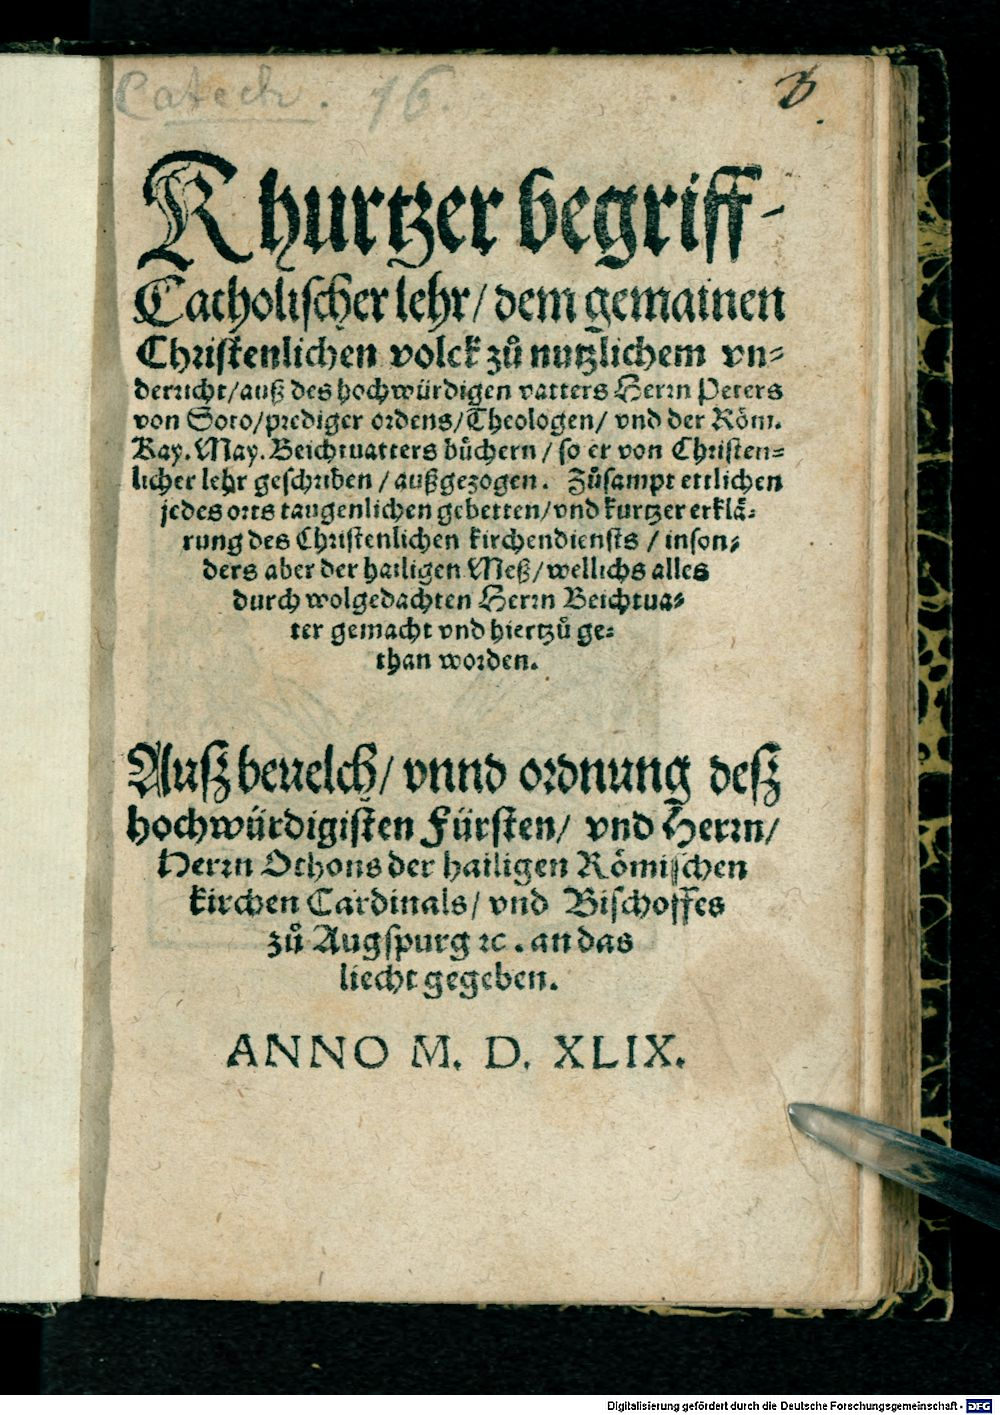 Catech. 16.
Khurtzer begriff-
Catholischer lehr / dem gemainen
Christenlichen volck zů nutzlichem vn-
derricht / auß des hochwürdigen vatters Herrn Peters
von Soto / prediger ordens / Theologen / vnd der Röm.
Kay. May. Beichtuatters bůchern / so er von Christen-
licher lehr geschriben / außgezogen. Zůsampt ettlichen
jedes orts taugenlichen gebetten / vnd kurtzer erklä-
rung des Christenlichen kirchendiensts / inson-
ders aber der hailigen Meß / wellichs alles
durch wolgedachten Herrn Beichtua-
ter gemacht vnd hiertzů ge-
than worden.
Ausz beuelch / vnnd ordnung desz
hochwürdigisten Fürsten / vnd Herrn /
Herrn Othons der hailigen Römischen
kirchen Cardinals / vnd Bischoffes
zů Augspurg ꝛc. an das
liecht gegeben.
ANNO M. D. XLIX.
Digitalisierung gefördert durch die Deutsche Forschungsgemeinschaft - DFG